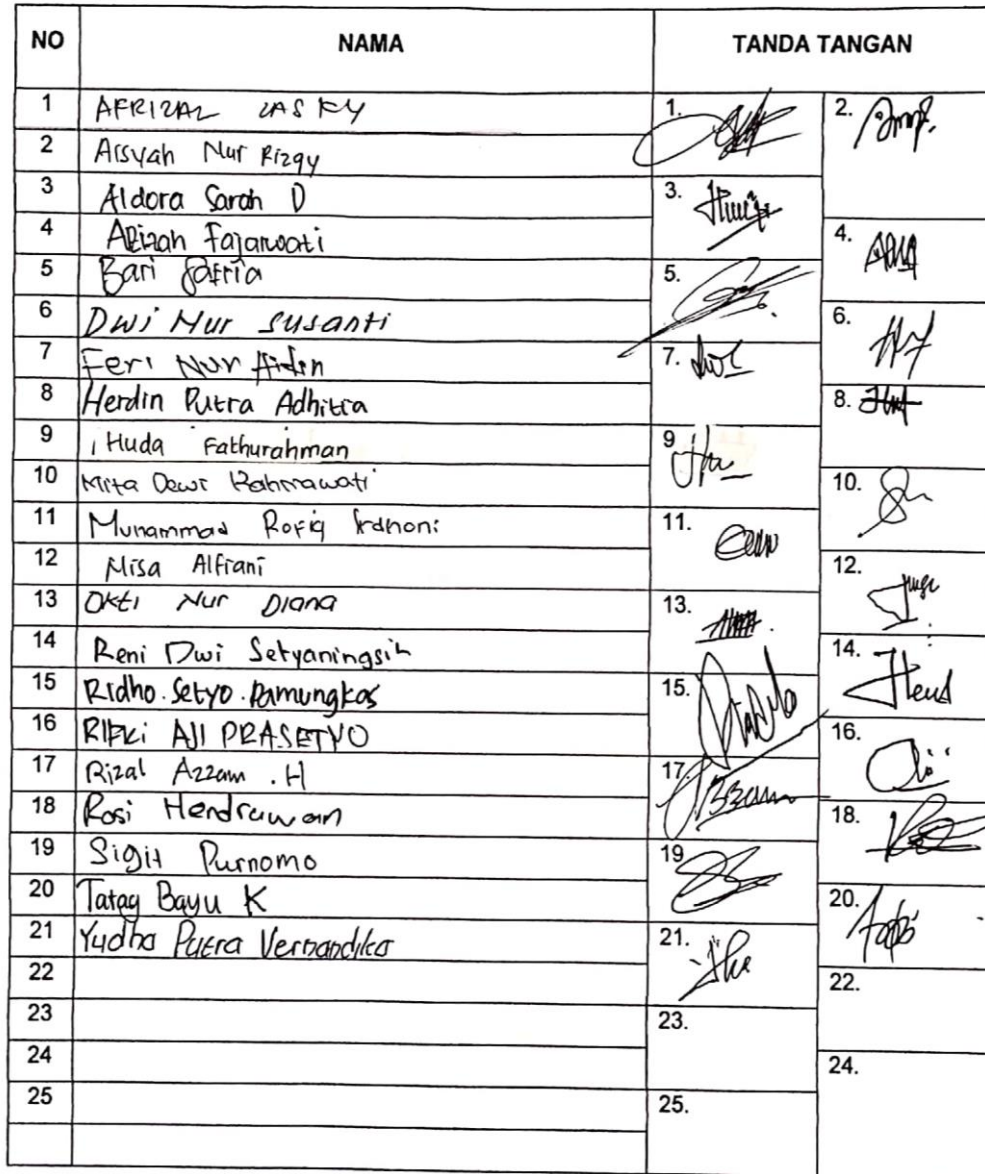 NO NAMA TANDA TANGAN
1 AFRIZAL LASKY 1. 2.
2 Arsyah Nur Rizqy
3 Aldora Sarah D 3.
4 Azizah Fajarwati 4.
5 Bari Safria 5.
6 Dwi Nur Susanti 6.
7 Feri Nur 7.
8 Herdin Putra Adhitia 8.
9 Huda Fathurahman 9
10 Mita Dewi Rahmawati 10.
11 Muhammad Rofiq 11.
12 Nisa Alfiani 12.
13 Okti Nur Diana 13.
14 Reni Dwi Setyaningsih 14.
15 Ridho. Setyo. Pamungkas 15.
16 RIFKi AJI PRASETYO 16.
17 Rizal Azzam . H 17.
18 Rosi Hendrawan 18.
19 Sigit Purnomo 19
20 Tatag Bayu K 20.
21 Yudha Putra Vernandika 21.
22 22.
23 23.
24 24.
25 25.